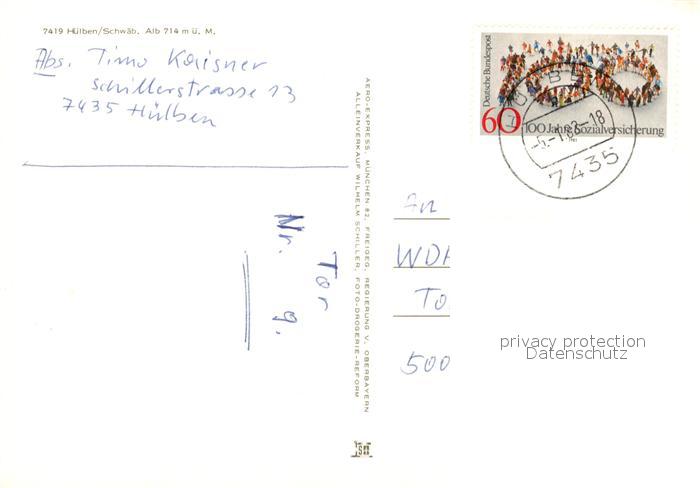 7419 Hülben/Schwäb. Alb 714 m ü. M.
Abs. Timo Kaisner
Schillerstrasse 13
7435 Hülben
Tor
Nr. 9.
AERO-EXPRESS, MÜNCHEN 82, FREIGEG. REGIERUNG V. OBERBAYERN
ALLEINVERKAUF WILHELM SCHILLER, FOTO-DROGERIE-REFORM
Deutsche Bundespost
60 100 Jahre Sozialversicherung
7435
An
WDR
To
500
privacy protection
Datenschutz